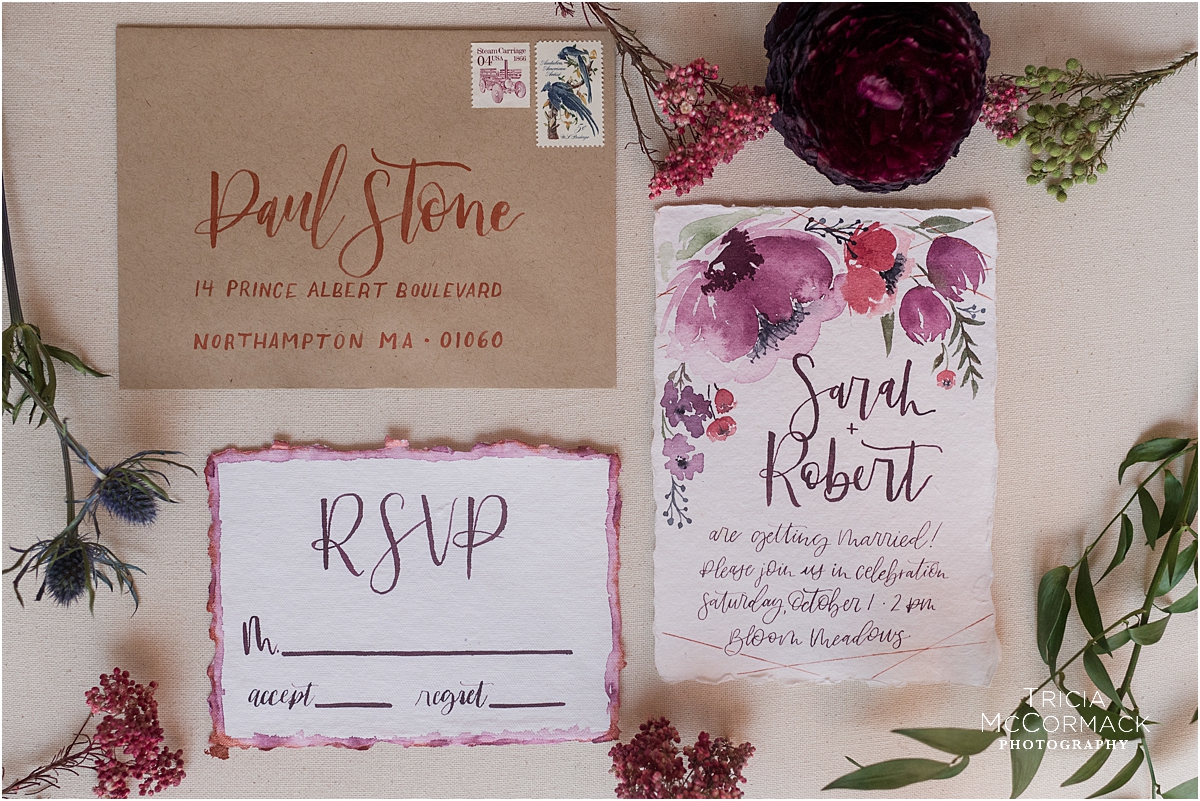 Steam Carriage
04 USA 1866
Audubon
American
Artist
5c
U.S. Postage
Paul Stone
14 PRINCE ALBERT BOULEVARD
NORTHAMPTON MA • 01060
RSVP
M.
accept regret
Sarah
+
Robert
are getting married!
please join us in celebration
Saturday, October 1 • 2 pm
Bloom Meadows
TRICIA
MCCORMACK
PHOTOGRAPHY